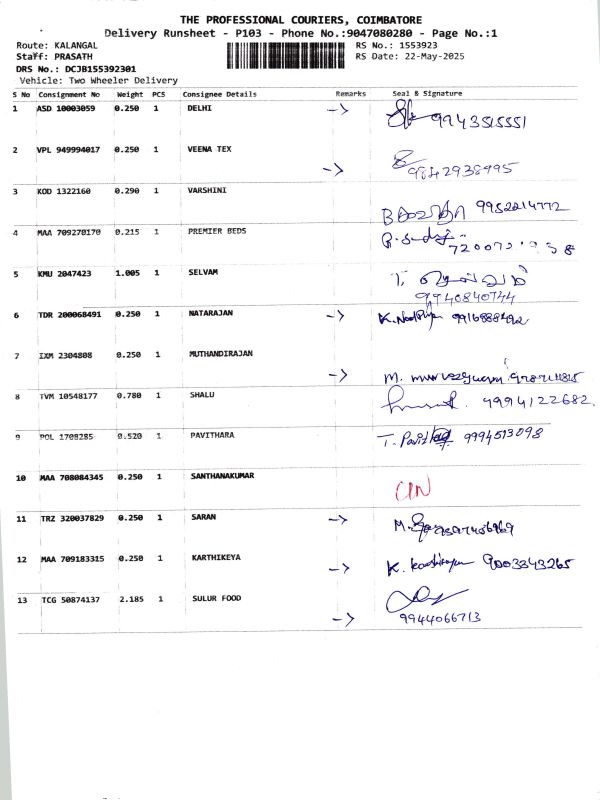 THE PROFESSIONAL COURIERS, COIMBATORE
Delivery Runsheet - P103 - Phone No.:9047080280 - Page No.:1
Route: KALANGAL RS No.: 1553923
Staff: PRASATH RS Date: 22-May-2025
DRS No.: DCJB155392301
Vehicle: Two Wheeler Delivery
S No Consignment No Weight PCS Consignee Details Remarks Seal & Signature
1 ASD 10003059 0.250 1 DELHI -> 9943515551
2 VPL 949994017 0.250 1 VEENA TEX
-> 9842938495
3 KOD 1322160 0.290 1 VARSHINI
9952214772
4 MAA 709270170 0.215 1 PREMIER BEDS
5 KMU 2047423 1.005 1 SELVAM
9940840744
6 TDR 200068491 0.250 1 NATARAJAN -> 9916888492
7 IXM 2304808 0.250 1 MUTHANDIRAJAN
-> M.
8 TVM 10548177 0.780 1 SHALU 9994122682
9 POL 1708285 0.520 1 PAVITHARA T. 9994513098
10 MAA 708084345 0.250 1 SANTHANAKUMAR
11 TRZ 320037829 0.250 1 SARAN -> M.
12 MAA 709183315 0.250 1 KARTHIKEYA -> K. 9003343265
13 TCG 50874137 2.185 1 SULUR FOOD
-> 9944066713